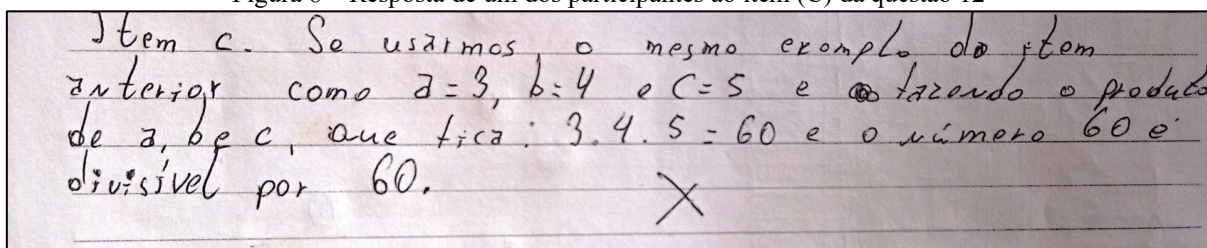 Figura 8 – Resposta de um dos participantes ao item (C) da questão 12
Item c. Se usarmos o mesmo exemplo do item
anterior como a=3, b=4 e c=5 e fazendo o produto
de a, b e c, que fica: 3.4.5=60 e o número 60 é
divisível por 60.
X